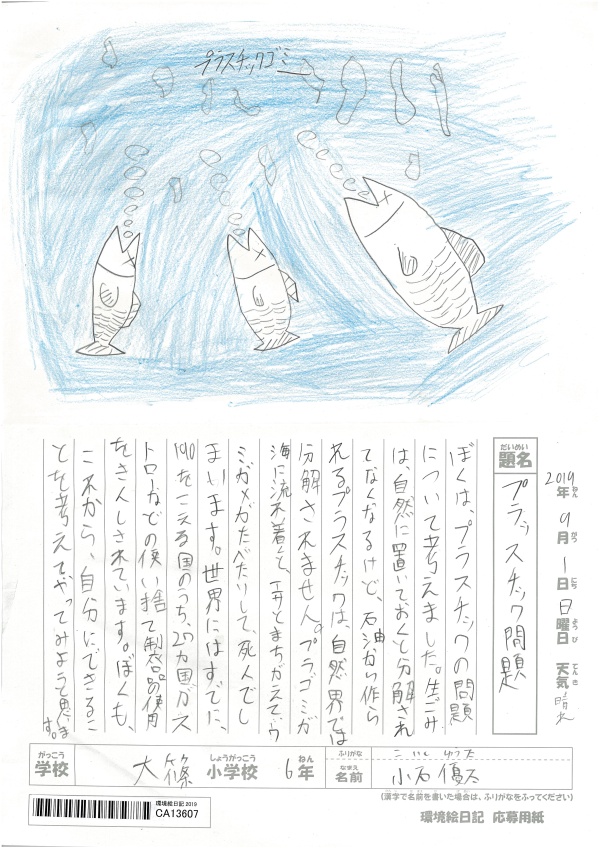 プラスチックゴミ
2019年ねん 9月がつ 1日にち 日曜日ようび 天気てんき 晴れ
題名だいめい プラッスチック問題
ぼくは、プラスチックの問題
について考えました。生ごみ
は、自然に置いておくと分解され
てなくなるけど、石油から作ら
れるプラスチックは、自然界では
分解されません。プラゴミが
海に流れ着くと、エサとまちがえて、ウ
ミガメがたべたりして、死んでし
まいます。世界にはすでに、
190をこえる国のうち、27カ国がス
トローなどの使い捨て制品の使用
をきんしされています。ぼくも、
これから、自分にできるこ
とを考えてやってみようと思いま
す。
学校がっこう 大篠 小学校しょうがっこう 6年ねん
ふりがな こいし ゆうた
名前なまえ 小石 優太
(漢字で名前を書いた場合は、ふりがなをふってください)
環境絵日記2019
CA13607
環境絵日記 応募用紙